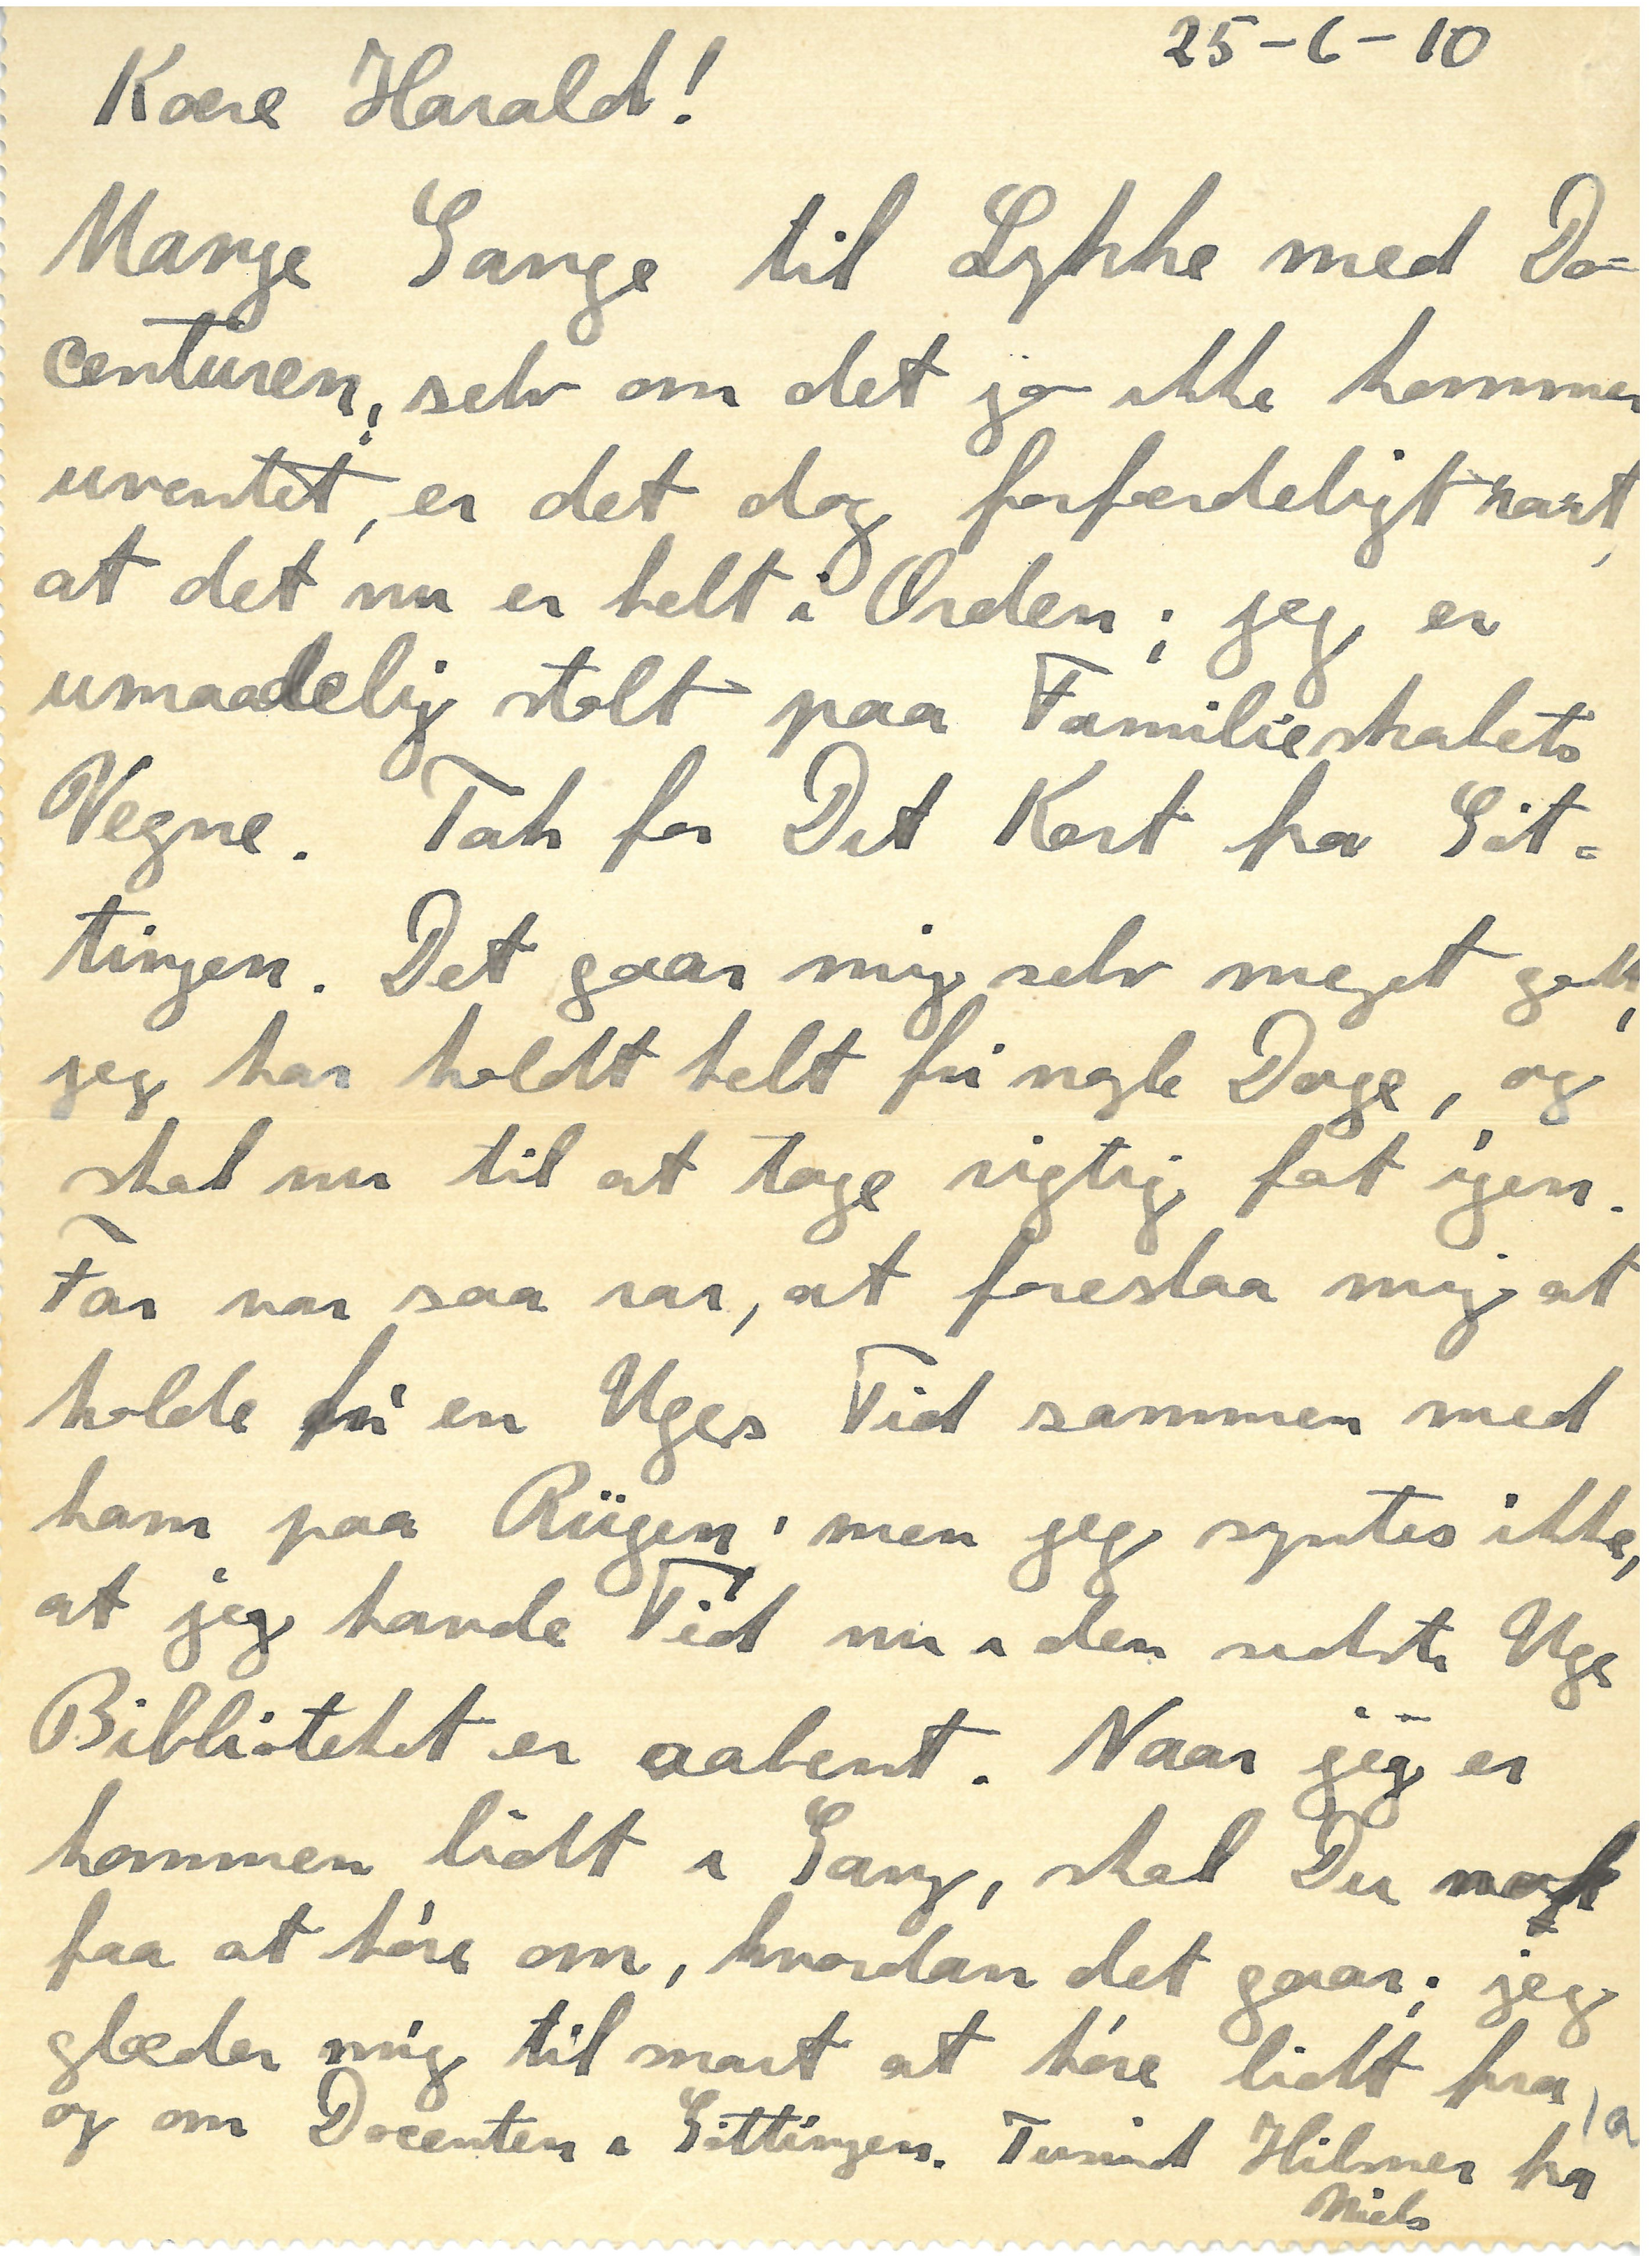 25-6-10
Kære Harald!
Mange Gange til Lykke med Do-
centuren; selv om det jo ikke kommer
uventet, er det dog forfærdeligt rart,
at det nu er helt i Orden; jeg er
umaadelig stolt paa Familieskabets
Vegne. Tak for Dit Kort fra Göt-
tingen. Det gaar mig selv meget godt,
jeg har holdt helt fri nogle Dage, og
skal nu til at tage rigtig fat igen.
Far var saa rar, at foreslaa mig at
holde fri en Uges Tid sammen med
ham paa Rügen; men jeg syntes ikke,
at jeg havde Tid nu i den sidste Uge
Biblioteket er aabent. Naar jeg er
kommen lidt i Gang, skal Du nok
faa at høre om, hvordan det gaar; jeg
glæder mig til snart at høre lidt fra
og om Docenten i Göttingen. Tusind Hilsner fra
Niels